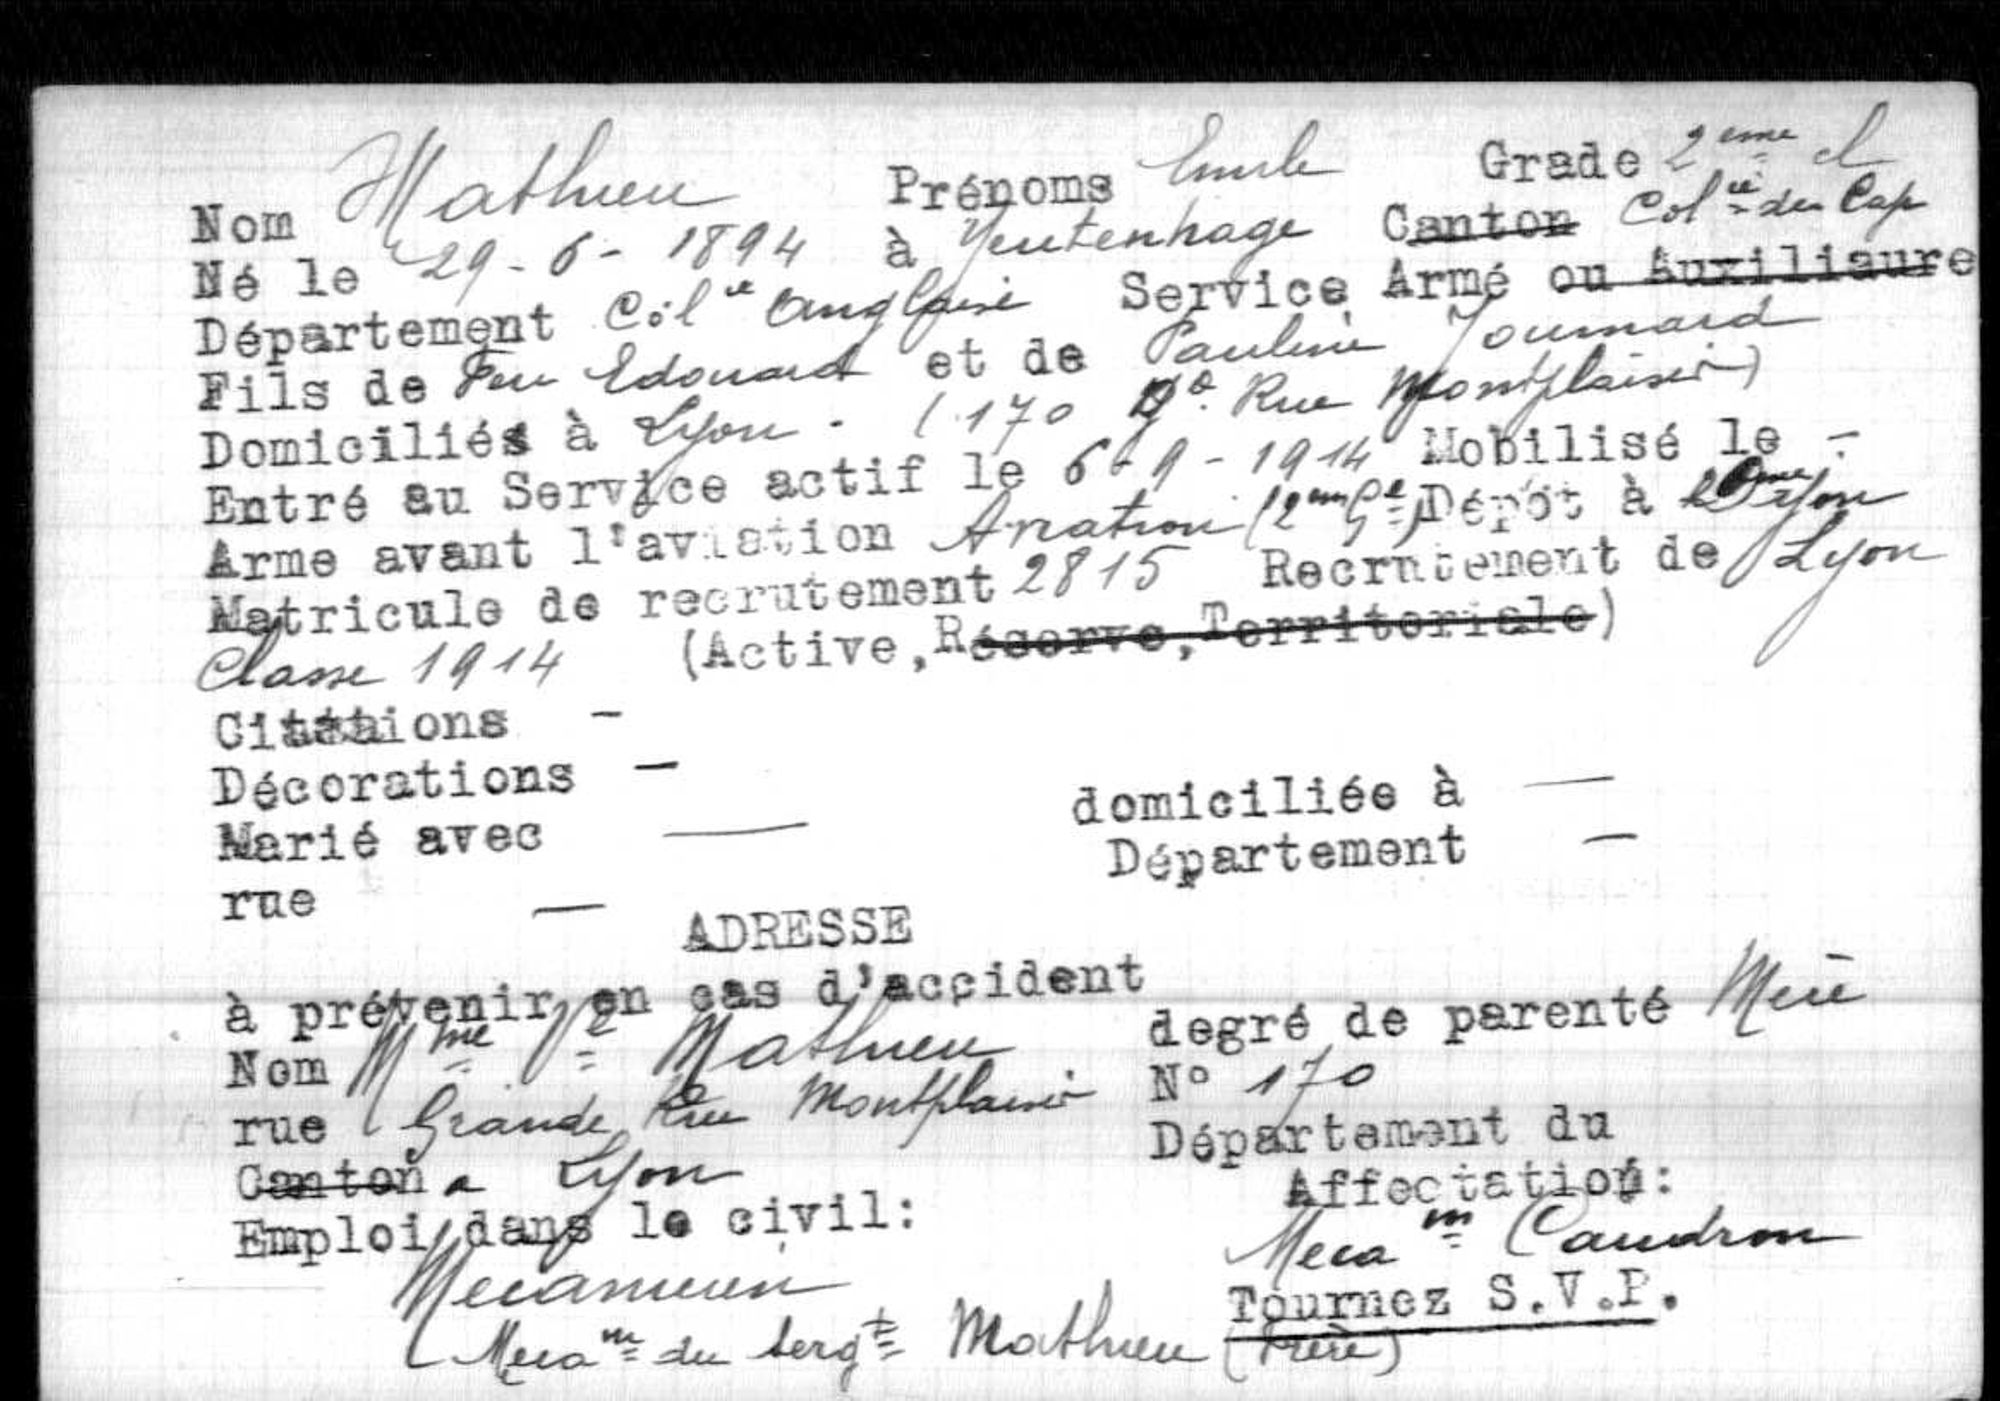 Nom Mathieu Prénoms Emile Grade 2ème cl
Né le 29-6-1894 à Yeutenhage Canton Colie du Cap
Département Colie Anglaise Service Armé ou Auxiliaure
Fils de Feu Edouard et de Pauline Joumard
Domiciliés à Lyon. (170 Gde Rue Montplaisir)
Entré au Service actif le 6-9-1914 Mobilisé le -
Arme avant l'aviation Aviation (2eme Ge) Dépôt à Lyon
Matricule de recrutement 2815 Recrutement de Lyon
Classe 1914 (Active, Réserve, Territoriale)
Citations -
Décorations -
Marié avec — domiciliée à —
rue — Département —
ADRESSE
à prévenir en cas d'accident
Nom Mme Ve Mathieu degré de parenté Mère
rue Grande Rue Montplaisir N° 170
Canton a Lyon Département du
Emploi dans le civil: Affectation:
Mecanicien Mecan Caudron
Tournez S.V.P.
(Mecan du sergt Mathieu (frère)